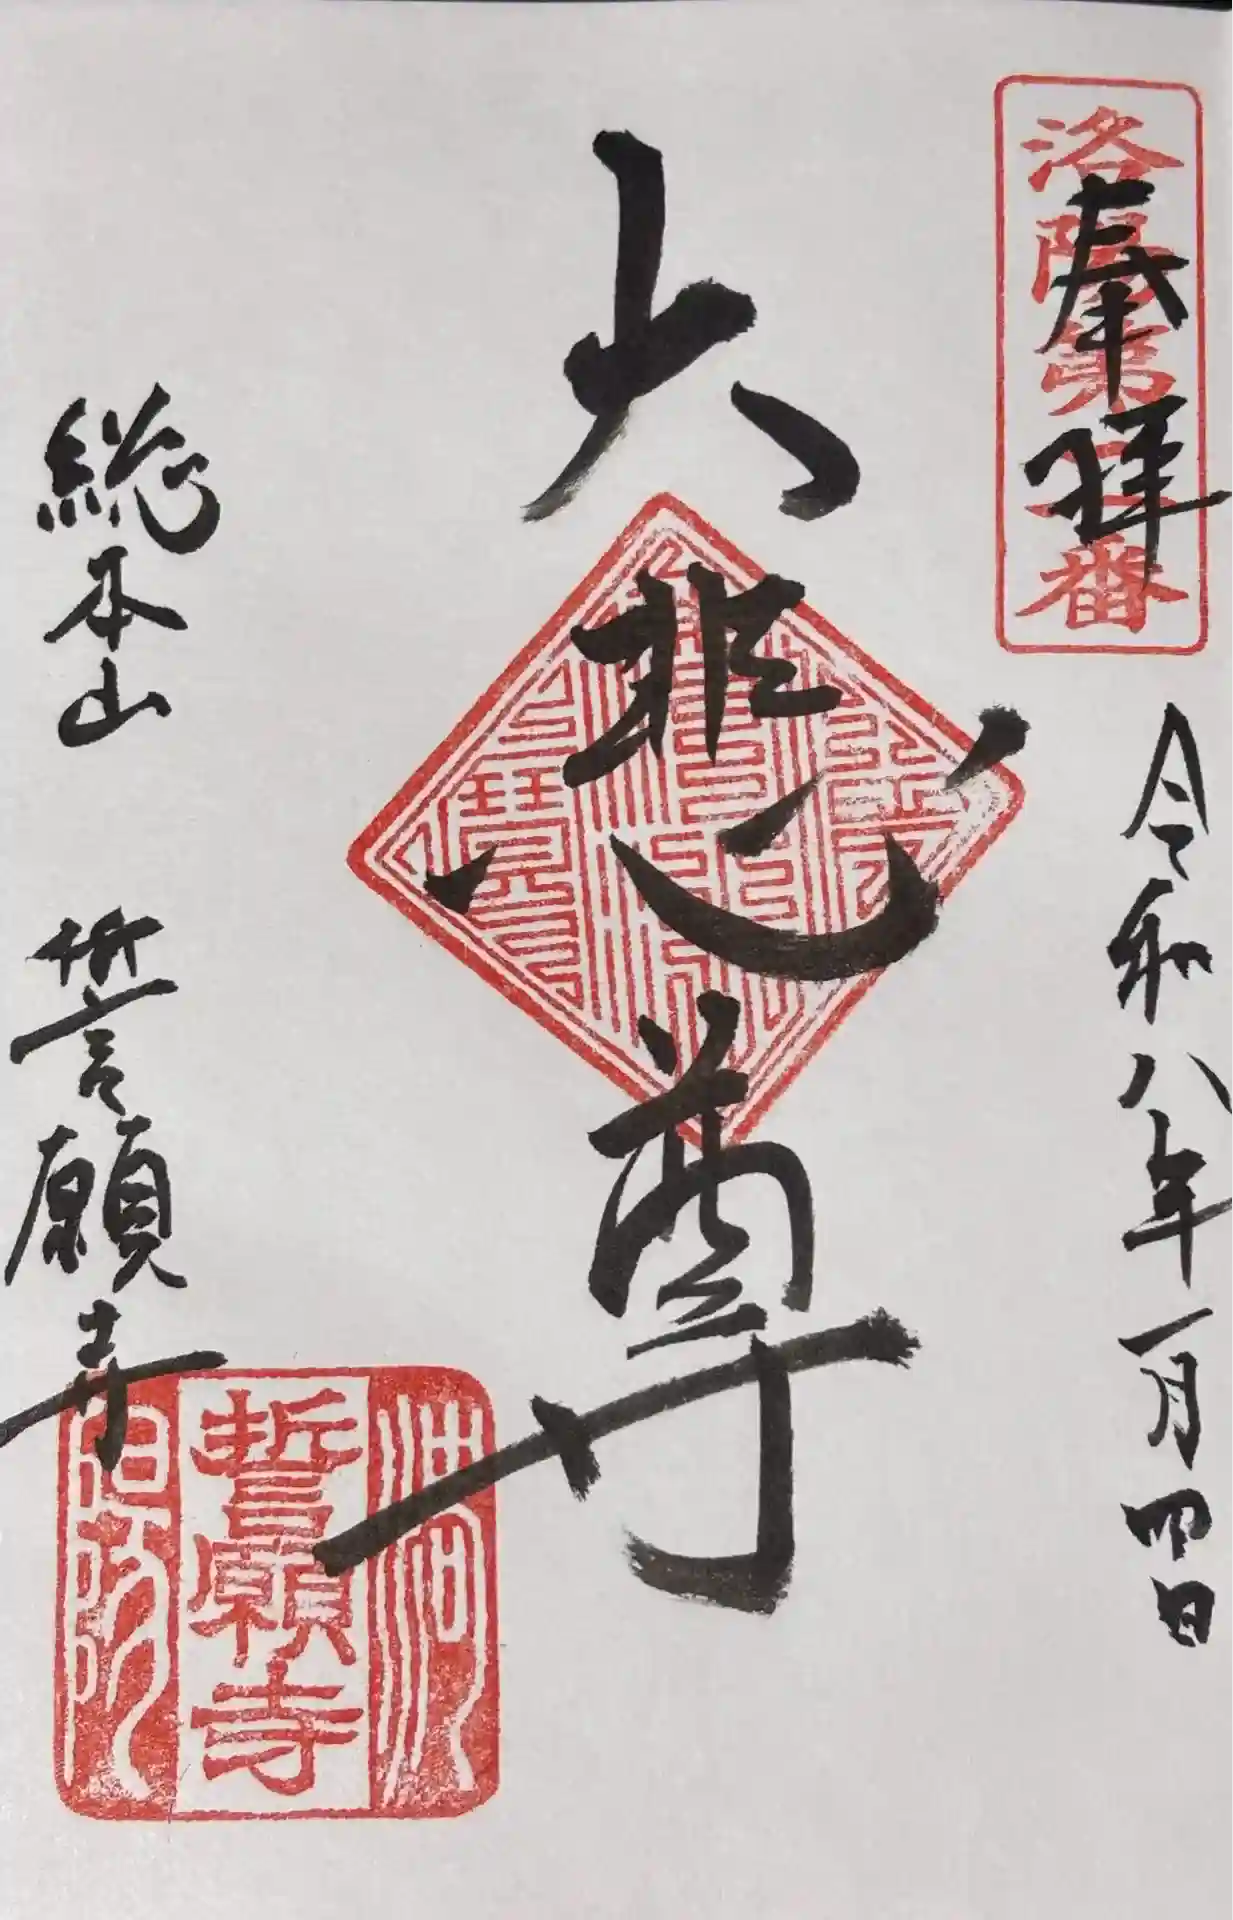 奉拝
洛陽第二番
令和八年一月四日
大悲尊
総本山 誓願寺
誓願寺